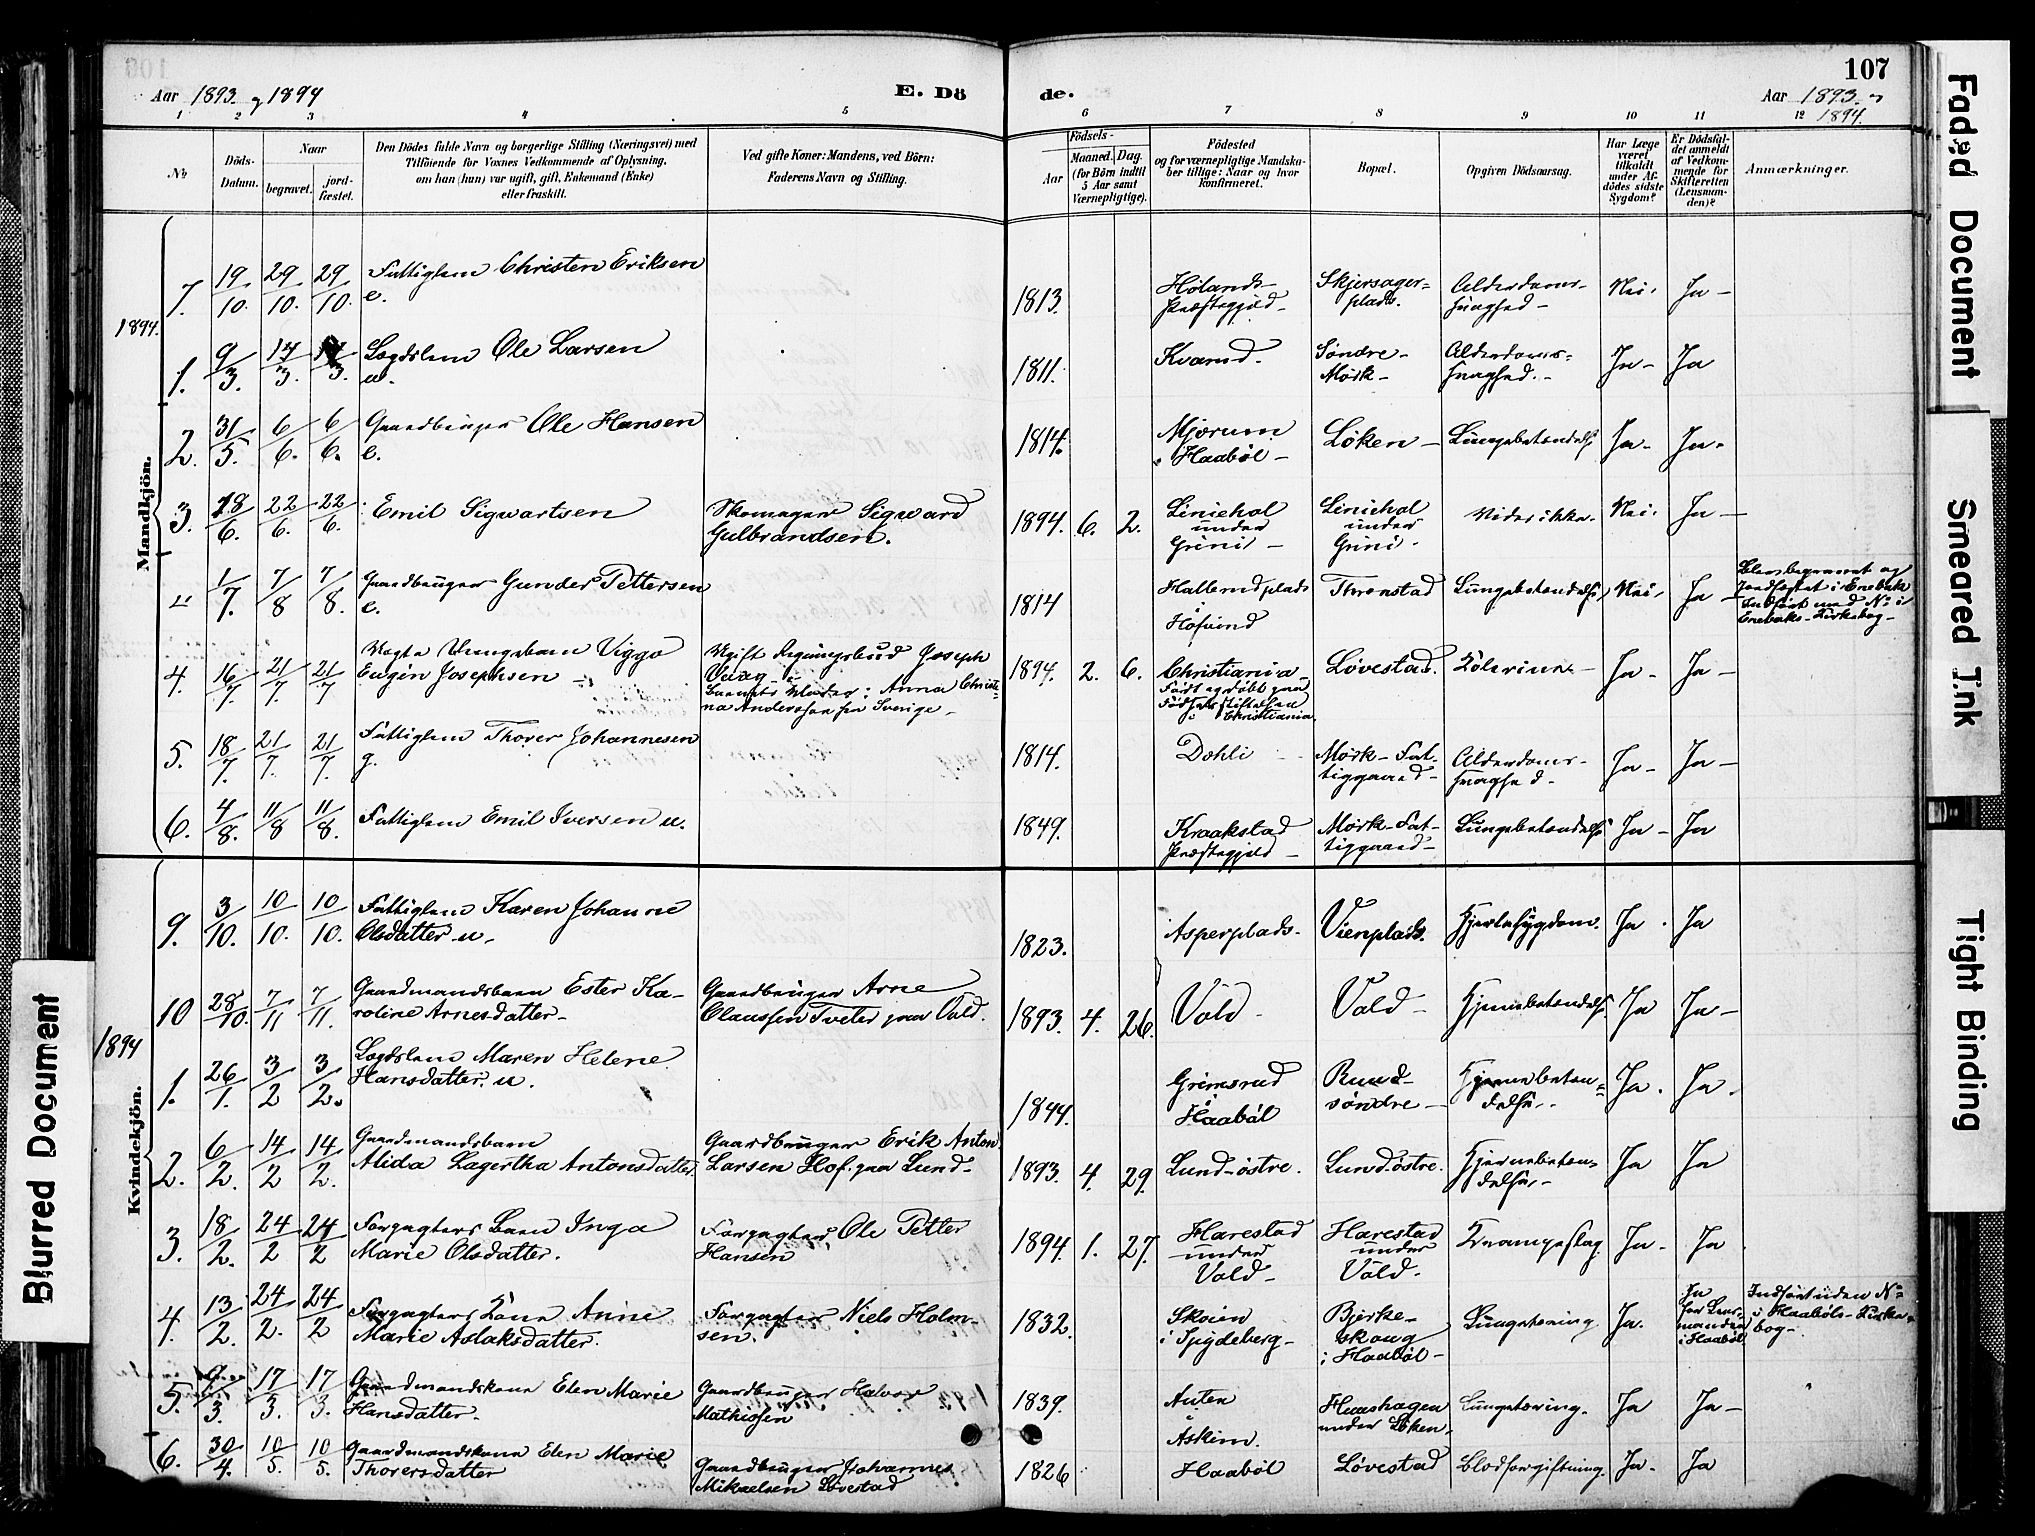 107
Aar 1893. og 1894
E. Dö de.
Aar 1893. og 1894.
1 2 3 4 5 6 7 8 9 10 11 12
№
Döds-Datum.
Naar
begravet.
jordfæstet.
Den Dödes fulde Navn og borgerlige Stilling (Næringsvei) med
Tilföiende for Voxnes Vedkommende af Oplysning,
om han (hun) var ugift, gift, Enkemand (Enke)
eller fraskilt.
Ved gifte Koner: Mandens, ved Börn:
Faderens Navn og Stilling.
Födsels-
Aar
Maaned. Dag.
(for Börn indtil
5 Aar samt
Værnepligtige).
Födested
og for værnepligtige Mandskaber tillige: Naar og hvor
konfirmeret.
Bopæl.
Opgiven Dödsaarsag.
Har Læge
været
tilkaldt
under Afdödes sidste
Sygdom?
Er Dödsfaldet anmeldt
af Vedkommende for
Skifteretten
(Lensmanden)?
Anmærkninger.
Mandkjön.
7. 19/10. 29/10. 29/10. Fattiglem Christen Eriksen e. 1813. Hølands- Præstegjeld- Skjersager-plads. Alderdoms-svaghed- Nei. Ja-
1894.
1. 9/3. 17/3. 17/3. Lægdslem Ole Larsen u. 1811. Kværnd. Søndre-Mørk- Alderdoms-svaghed.- Ja- Ja
2. 31/5. 6/6. 6/6. Gaardbruger Ole Hansen e. 1814. Mjærum i Haabøl- Løken- Lungebetændelse Ja- Ja-
3. 18/6. 22/6. 22/6. Emil Sigwartsen Skomager Sigward Gulbrandsen. 1894. 6. 2. Liniehol under Grini- Liniehol under Grini. Vides ikke. Nei. Ja-
" 1/7. 7/8 7/8. Gaardbruger Gunder Pettersen e. 1814 Hallerudplads i Høfund Thronstad Lungebetændelse Nei, Ja- Blev begravet og jordfæstet i Enebak Indført med № i Enebaks-Kirkebog-
4. 16/7. 21/7. 21/7 Uægte Drengebarn Viggo Eugen Josephsen- Ugift Joseph Barnets Moder: Anna Christina Andersson fra Sverige- 1894. 2. 6. Christiania- Født og døbt paa Fødselsstiftelsen i Christiania. Løvestad. Kolerine- Ja- Ja-
5. 18/7. 21/7. 21/7. Fattiglem Thorer Johannesen g. 1814. Dahli Mørk-Fattiggaard- Alderdoms-svaghed- Ja- Ja-
6. 4/8. 11/8 11/8. Fattiglem Emil Iversen u. 1849. Kraakstad Præstegjeld- Mørk-Fattiggaard- Lungebetændelse Ja- Ja
Kvindekjön.
9. 3/10. 10/10. 10/10. Fattiglem Karen Johanne Olsdatter u- 1823. Asperplads- Vienplads. Hjertesygdom. Ja. Ja
10 28/10. 7/11 7/11. Gaardmandsbarn Ester Karoline Arnesdatter- Gaardbruger Arne Claussen Tveter paa Vold. 1893. 4. 26. Vold- Vold- Hjernebetændelse. Ja Ja-
1894
1. 26/1. 3/2 3/2. Lægdslem Maren Helene Hansdatter. u. 1844. Grimsrud i Haabøl Rud-søndre- Hjernebetændelse.- Ja. Ja-
2. 6/2. 14/2 14/2. Gaardmandsbarn Alida Lagertha Antonsdatter. Gaardbruger Erik Anton Larsen Hof. paa Lund- 1893. 4. 29. Lund-østre. Lund-østre. Hjernebetændelse.- Ja Ja
3. 18/2. 24/2 24/2 Forpagters Barn Inga Marie Olsdatter. Forpagter Ole Petter Hansen 1894. 1. 27. Harestad under Vold- Harestad under Vold. Krampeslag. Ja- Ja
4. 13/2. 24/2. 24/2 Forpagters Kone Anne Marie Aslaksdatter. Forpagter Niels Holmsen. 1832. Skoien i Spydeberg- Bjerkeskoug i Haabøl- Lungetæring Ja. Ja for Lensmanden i Haabøl Indført uden № i Haabøls-Kirkebog-
5. 9/3. 17/3. 17/3. Gaardmandskone Elen Marie Hansdatter- Gaardbruger Halvor Mathisen 1839. Auten i Askim. Huushagen under Løken. Lungetæring. Ja Ja-
6. 30/4. 10/5. 10/5. Gaardmandskone Elen Marie Thorersdatter Gaardbruger Johannes Mikaelsen Løvestad 1826 Haabøl Løvestad Blodforgiftning. Ja- Ja
Faded Document
Smeared Ink
Tight Binding
Blurred Document